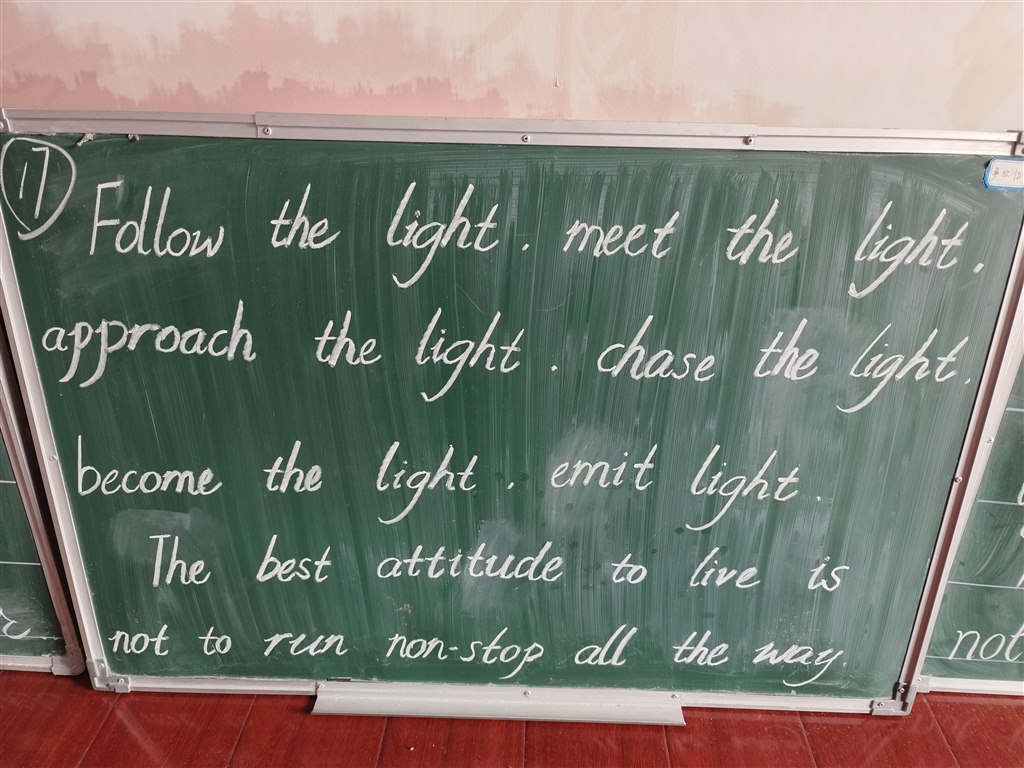 17
Follow the light. meet the light.
approach the light. chase the light.
become the light. emit light.
The best attitude to live is
not to run non-stop all the way.
not